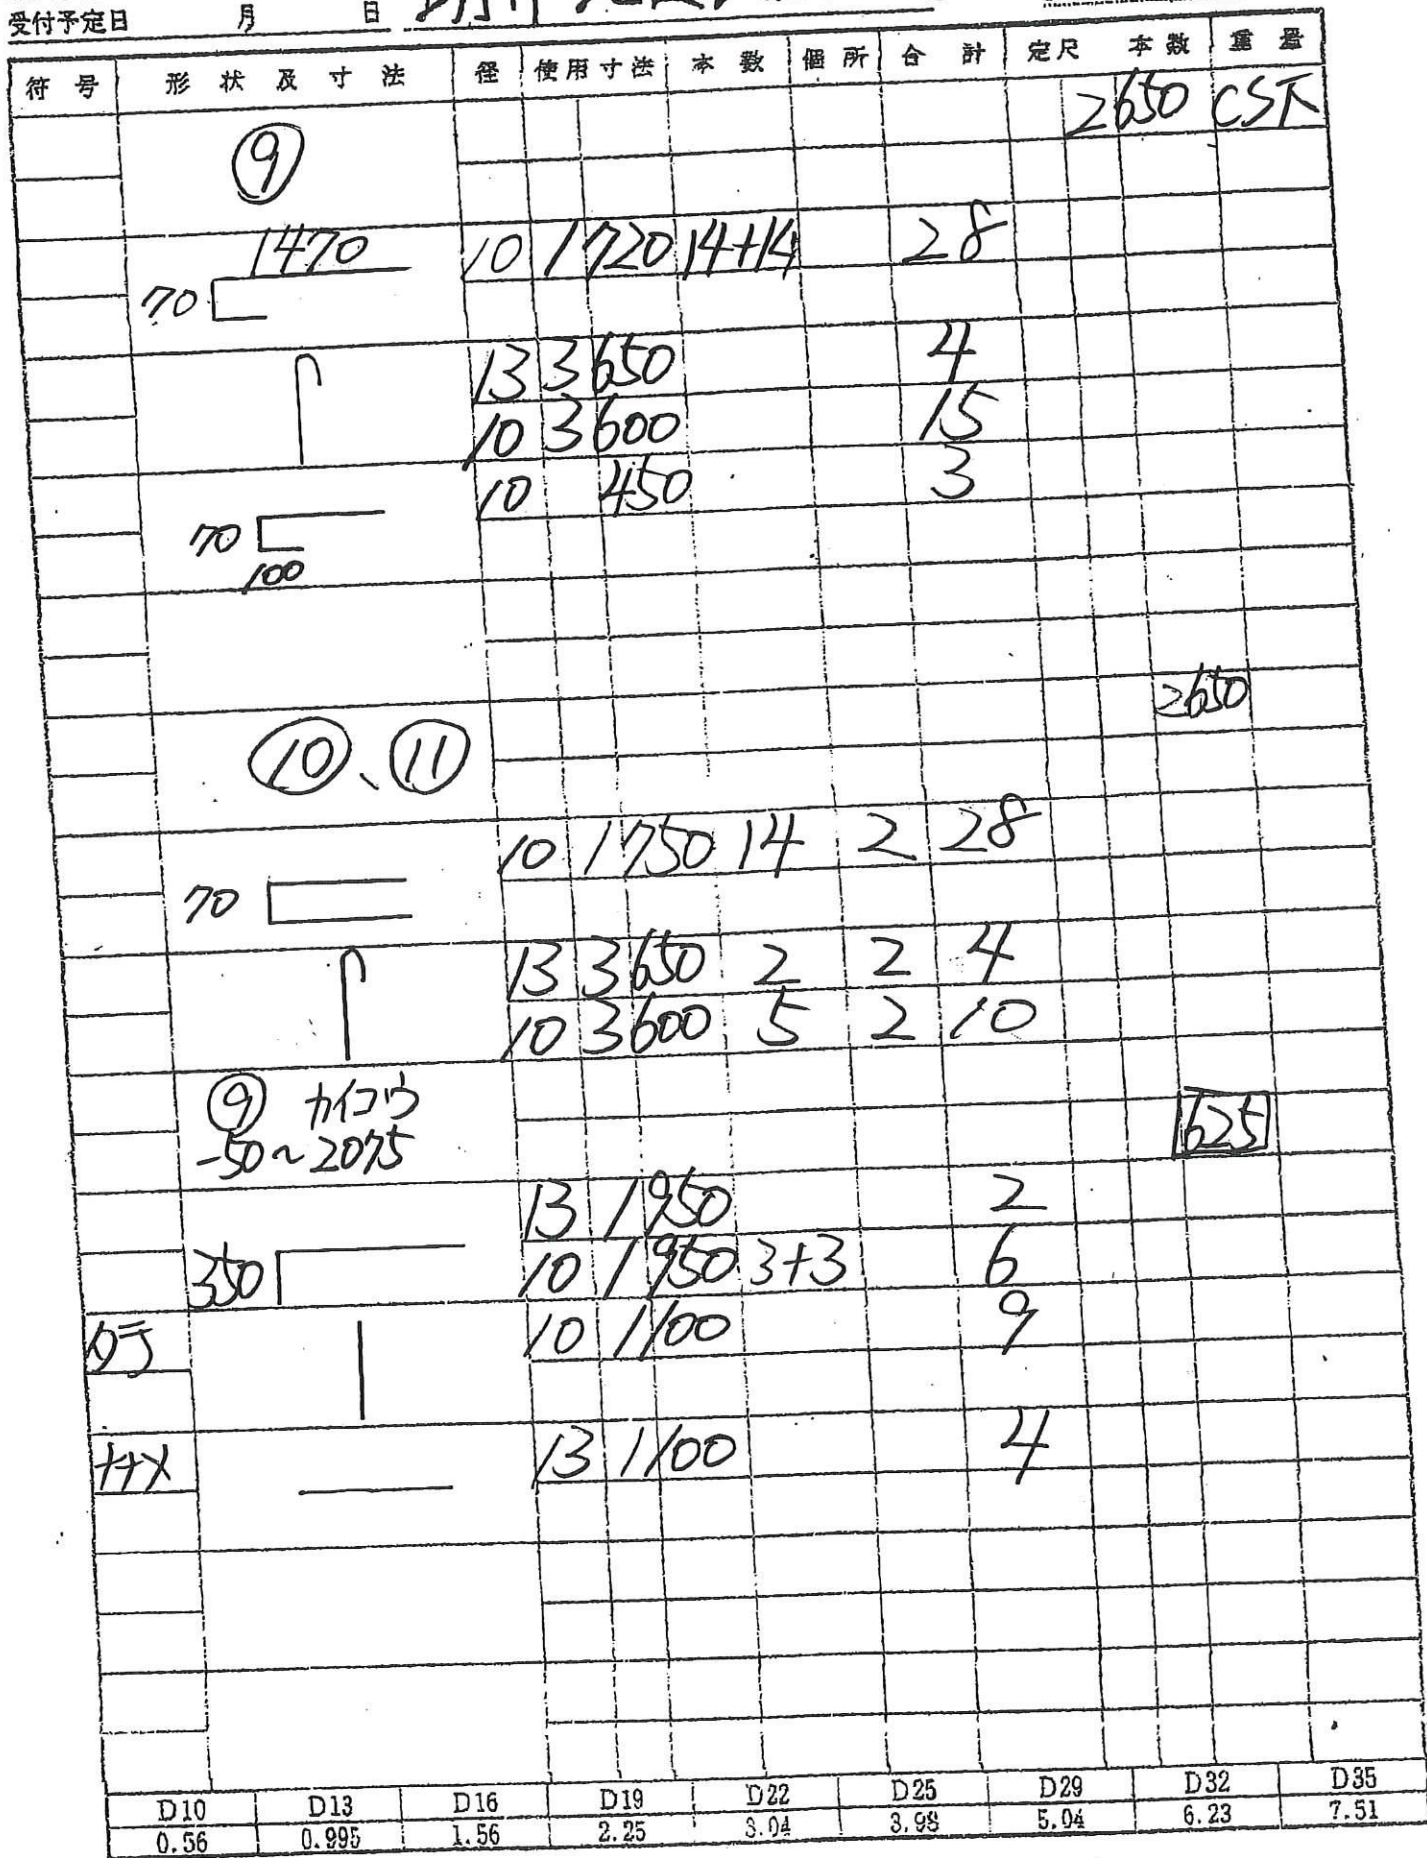 受付予定日 月 日
符号 形状及寸法 径 使用寸法 本数 個所 合計 定尺 本数 重量
2650 CS下
⑨
1470 10 1720 14+14 28
70
13 3650 4
10 3600 15
10 450 3
70
100
2650
⑩、⑪
10 1750 14 2 28
70
13 3650 2 2 4
10 3600 5 2 10
⑨ カイコウ
-50~2075
625
13 1950 2
350 10 1950 3+3 6
タテ 10 1100 9
ナナメ 13 1100 4
D10 D13 D16 D19 D22 D25 D29 D32 D35
0.56 0.995 1.56 2.25 3.04 3.98 5.04 6.23 7.51